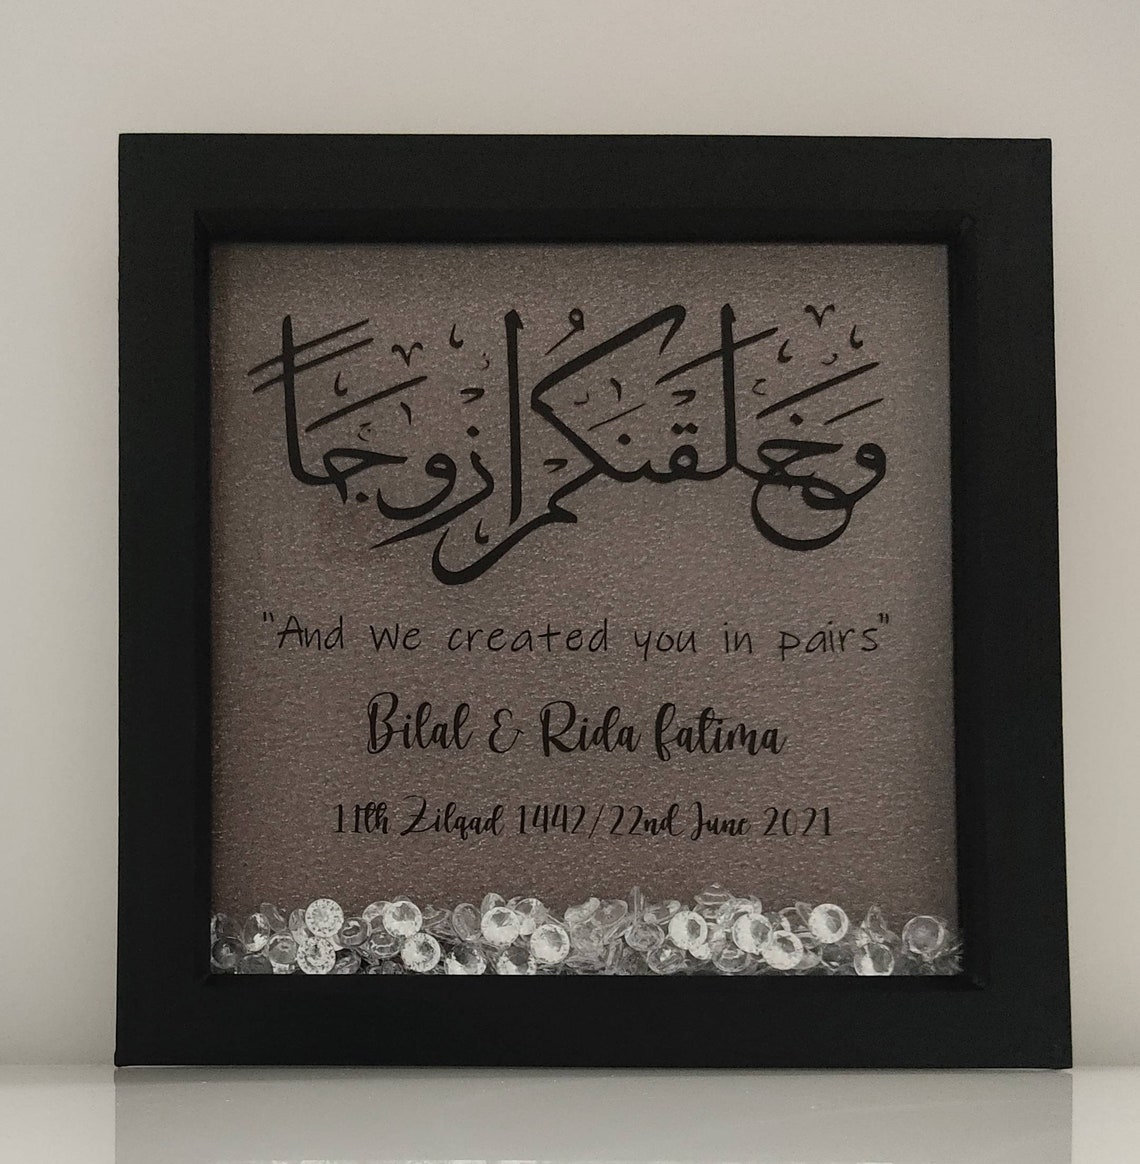 وخلقنكم ازوجاً
"And We created you in pairs"
Bilal & Rida fatima
11th Zilqad 1442/22nd June 2021